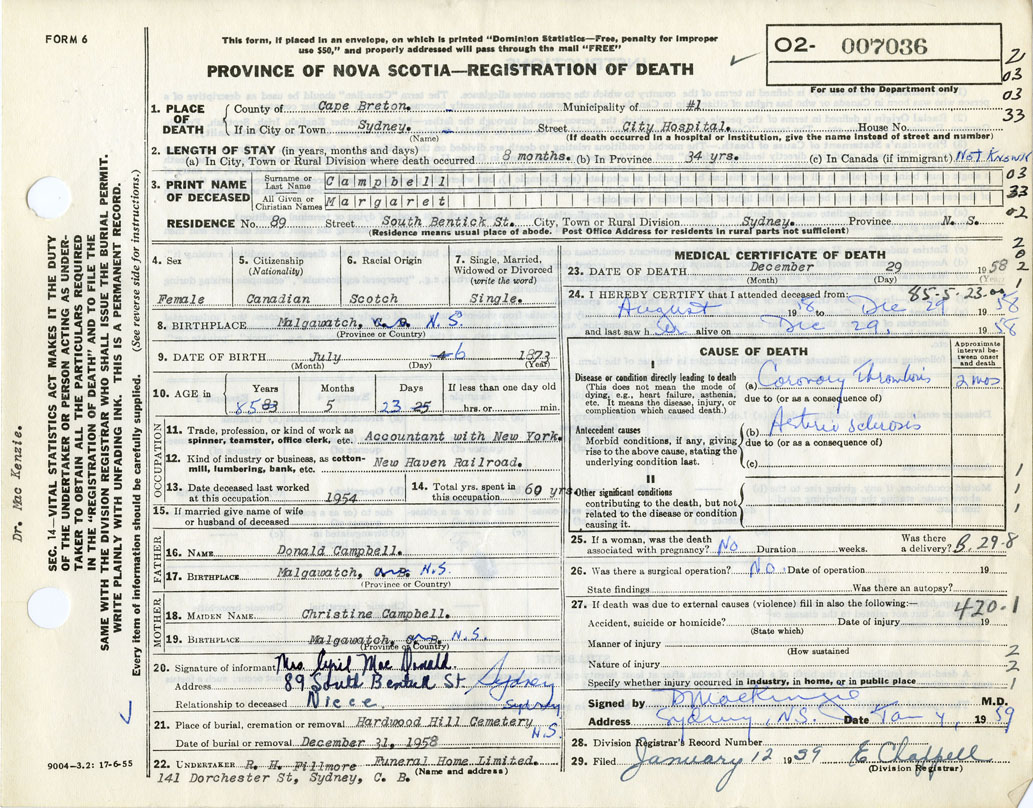 FORM 6
This form, if placed in an envelope, on which is printed "Dominion Statistics—Free, penalty for improper
use $50," and properly addressed will pass through the mail "FREE"
O2- 007036
PROVINCE OF NOVA SCOTIA—REGISTRATION OF DEATH
For use of the Department only
21
03
03
33
1. PLACE OF DEATH
County of Cape Breton. Municipality of #1
If in City or Town Sydney. Street City Hospital. House No.
(Name) (If death occurred in a hospital or institution, give the name instead of street and number)
2. LENGTH OF STAY (in years, months and days)
(a) In City, Town or Rural Division where death occurred 8 months. (b) In Province 34 yrs. (c) In Canada (if immigrant) Not Known
3. PRINT NAME OF DECEASED
Surname or Last Name Campbell
All Given or Christian Names Margaret
03
33
02
RESIDENCE No. 89 Street South Bentick St. City, Town or Rural Division Sydney. Province N. S.
(Residence means usual place of abode. Post Office Address for residents in rural parts not sufficient)
4. Sex
Female
5. Citizenship
(Nationality)
Canadian
6. Racial Origin
Scotch
7. Single, Married,
Widowed or Divorced
(write the word)
Single.
8. BIRTHPLACE Malgawatch, N.S.
(Province or Country)
9. DATE OF BIRTH July 6 1873
(Month) (Day) (Year)
10. AGE in
Years Months Days If less than one day old
85 83 5 23 25 hrs. or min.
OCCUPATION
11. Trade, profession, or kind of work as
spinner, teamster, office clerk, etc. Accountant with New York.
12. Kind of industry or business, as cotton-
mill, lumbering, bank, etc. New Haven Railroad.
13. Date deceased last worked
at this occupation 1954
14. Total yrs. spent in
this occupation 60 yrs.
15. If married give name of wife
or husband of deceased
FATHER
16. NAME Donald Campbell.
17. BIRTHPLACE Malgawatch, N.S.
(Province or Country)
MOTHER
18. MAIDEN NAME Christine Campbell.
19. BIRTHPLACE Malgawatch. N.S.
(Province or Country)
20. Signature of informant Mrs Cyril Mac Donald.
Address 89 South Bentick St. Sydney
Relationship to deceased Niece. Sydney
21. Place of burial, cremation or removal Hardwood Hill Cemetery N.S.
Date of burial or removal December 31. 1958
22. UNDERTAKER R. H. Fillmore Funeral Home Limited.
(Name and address)
141 Dorchester St, Sydney, C. B.
MEDICAL CERTIFICATE OF DEATH
23. DATE OF DEATH December 29 1958
(Month) (Day) (Year)
85-5-23
24. I HEREBY CERTIFY that I attended deceased from:
August 1958 to Dec 29 1958
and last saw her alive on Dec 29, 1958
CAUSE OF DEATH
Approximate
interval be-
tween onset
and death
I
Disease or condition directly leading to death
(This does not mean the mode of
dying, e.g., heart failure, asthenia,
etc. It means the disease, injury, or
complication which caused death.)
(a) Coronary Thrombosis 2 mos
due to (or as a consequence of)
Antecedent causes
Morbid conditions, if any, giving
rise to the above cause, stating the
underlying condition last.
(b) Arterio sclerosis
due to (or as a consequence of)
(c)
II
Other significant conditions
contributing to the death, but not
related to the disease or condition
causing it.
25. If a woman, was the death
associated with pregnancy? No Duration weeks. Was there
a delivery? B. 29-8
26. Was there a surgical operation? No. Date of operation 19
State findings Was there an autopsy?
27. If death was due to external causes (violence) fill in also the following:— 420.1
Accident, suicide or homicide? Date of injury 19
(State which)
Manner of injury
(How sustained
Nature of injury
Specify whether injury occurred in industry, in home, or in public place
Signed by D Mackenzie M.D.
Address Sydney, N.S. Date Jan 7, 1959
28. Division Registrar's Record Number
29. Filed January 12 1959 E Chappell
(Division Registrar)
9004—3.2: 17-6-55
Dr. Mac Kenzie.
SEC. 14—VITAL STATISTICS ACT MAKES IT THE DUTY
OF THE UNDERTAKER OR PERSON ACTING AS UNDER-
TAKER TO OBTAIN ALL THE PARTICULARS REQUIRED
IN THE "REGISTRATION OF DEATH" AND TO FILE THE
SAME WITH THE DIVISION REGISTRAR WHO SHALL ISSUE THE BURIAL PERMIT.
WRITE PLAINLY WITH UNFADING INK. THIS IS A PERMANENT RECORD.
Every item of information should be carefully supplied. (See reverse side for instructions.)